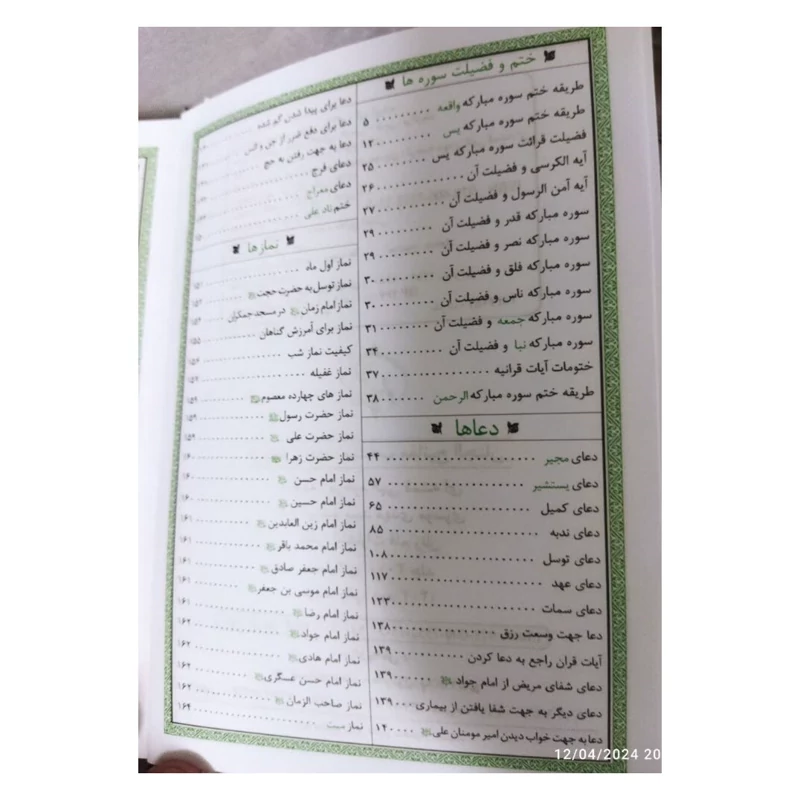 ختم و فضیلت سوره ها
طریقه ختم سوره مبارکه واقعه ۵
طریقه ختم سوره مبارکه یس ۱۲
فضیلت قرائت سوره مبارکه یس ۲۵
آیه الکرسی و فضیلت آن ۲۶
آیه آمن الرسول و فضیلت آن ۲۷
سوره مبارکه قدر و فضیلت آن ۲۹
سوره مبارکه نصر و فضیلت آن ۲۹
سوره مبارکه فلق و فضیلت آن ۳۰
سوره مبارکه ناس و فضیلت آن ۳۰
سوره مبارکه جمعه و فضیلت آن ۳۱
سوره مبارکه نبا و فضیلت آن ۳۴
ختومات آیات قرانیه ۳۷
طریقه ختم سوره مبارکه الرحمن ۳۸
دعاها
دعای مجیر ۴۴
دعای یستشیر ۵۷
دعای کمیل ۶۵
دعای ندبه ۸۵
دعای توسل ۱۰۸
دعای عهد ۱۱۷
دعای سمات ۱۲۳
دعا جهت وسعت رزق ۱۳۸
آیات قران راجع به دعا کردن ۱۳۹
دعای شفای مریض از امام جواد ۱۳۹
دعای دیگر به جهت شفا یافتن از بیماری ۱۳۹
دعا به جهت خواب دیدن امیر مومنان علی ۱۴۰
دعا برای پیدا شدن گم شده
دعا برای دفع ضرر از جن و انس
دعا به جهت رفتن به حج
دعای فرج
دعای معراج
ختم ناد علی
نمازها
نماز اول ماه ۱۵۱
نماز توسل به حضرت حجت ۱۵۲
نماز امام زمان در مسجد جمکران
نماز برای آمرزش گناهان ۱۵۵
کیفیت نماز شب ۱۵۶
نماز غفیله
نماز های چهارده معصوم ۱۵۹
نماز حضرت رسول ۱۵۹
نماز حضرت علی ۱۵۹
نماز حضرت زهرا ۱۶۰
نماز امام حسن ۱۶۰
نماز امام حسین ۱۶۰
نماز امام زین العابدین ۱۶۱
نماز امام محمد باقر ۱۶۱
نماز امام جعفر صادق ۱۶۱
نماز امام موسی بن جعفر ۱۶۱
نماز امام رضا ۱۶۱
نماز امام جواد ۱۶۲
نماز امام هادی ۱۶۲
نماز امام حسن عسگری ۱۶۲
نماز صاحب الزمان ۱۶۲
نماز میت ۱۶۴
12/04/2024 20